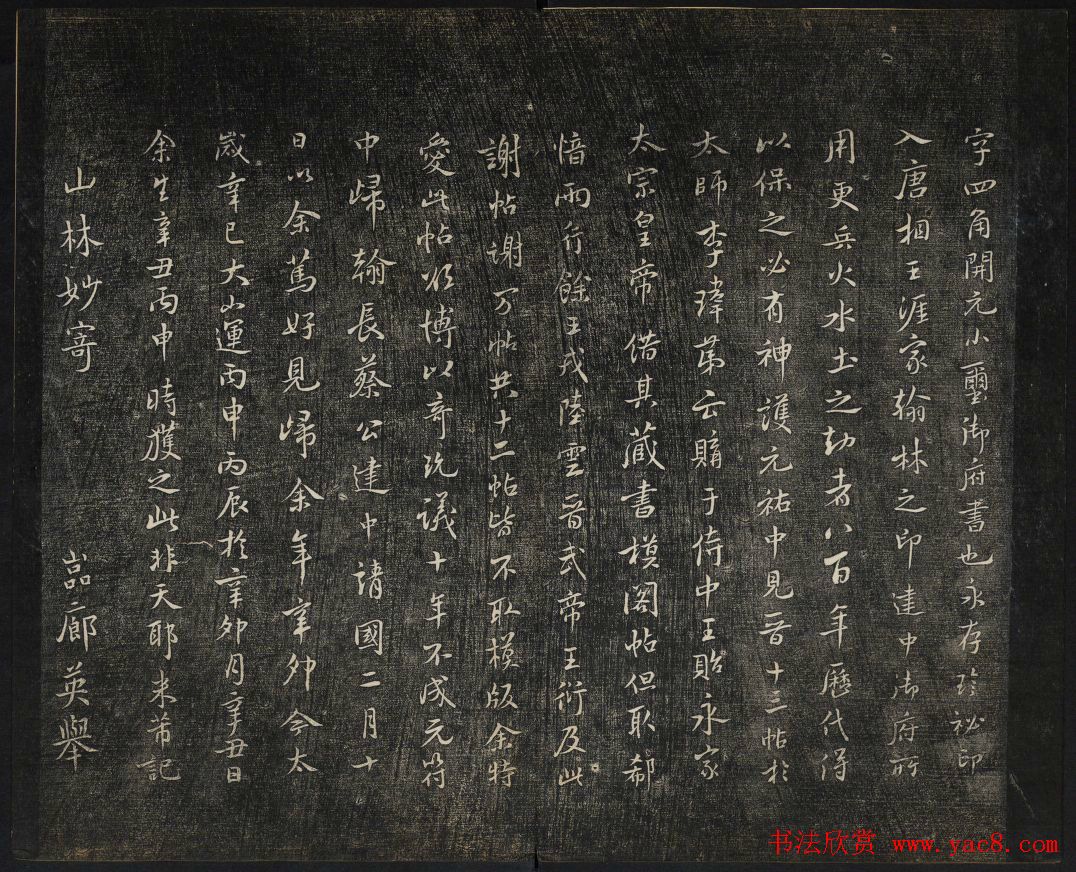 字四角開元小璽御府書也永存珍祕印
入唐相王涯家翰林之印建中御府所
用更兵火水土之劫者八百年歷代得
以保之必有神護元祐中見晉十三帖於
太師李瑋第云購于侍中王貽永家
太宗皇帝借其藏書模閣帖但取郗
愔兩行餘王戎陸雲晉武帝王衍及此
謝帖謝万帖共十二帖皆不取模版余特
愛此帖欲博以奇玩議十年不成元符
中歸翰長蔡公建中靖國二月十
日以余篤好見歸余年辛卯今太
歲辛巳大小運丙申丙辰於辛卯月辛丑日
余生辛丑丙申時獲之此非天耶米芾記
山林妙寄
巖廊英舉
书法欣赏 www.yac8.com